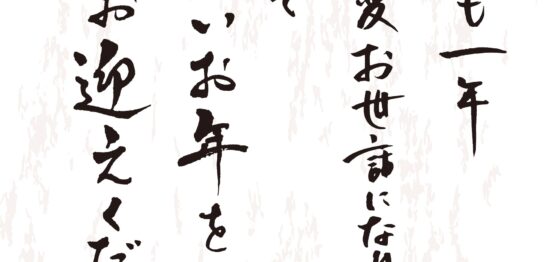 も一年
変お世話になり
て
いお年を
お迎えくだ